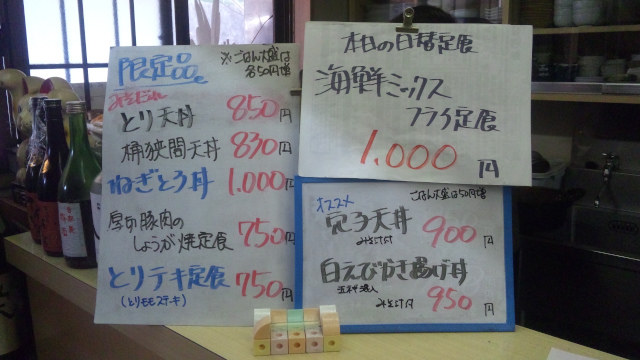 限定品
※ごはん大盛は
各50円増
みそだれ
とり天丼 850円
桶狭間天丼 830円
ねぎとろ丼 1.000円
厚切豚肉の
しょうが焼定食 750円
とりテキ定食 750円
(とりモモステーキ)
本日の日替定食
海鮮ミックス
フライ定食
1.000円
オススメ
ごはん大盛は50円増
穴子天丼 900円
みそ汁付
白えびかき揚げ丼 950円
みそ汁付